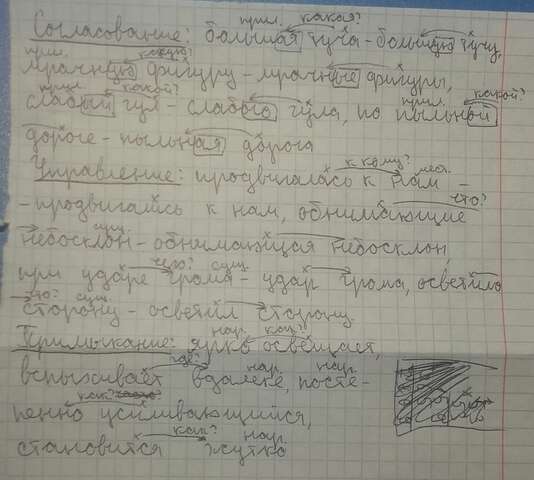 прил. какая?
Согласование: большая туча - большую тучу,
прил. какую?
мрачную фигуру - мрачные фигуры,
прил. какой? прил. какой?
слабый гул - слабого гула, по пыльной
дороге - пыльная дорога
к кому? мест.
Управление: продвигалась к нам -
что?
- продвигаясь к нам, обнимающие
сущ.
небосклон - обнимающая небосклон,
чего? сущ.
при ударе грома - удар грома, осветило
что? сущ.
сторону - осветил сторону.
нар. как?
Примыкание: ярко освещает,
где? нар. нар.
вспыхивает вдалеке, посте-
как?
пенно усиливающийся,
как? нар.
становится жутко